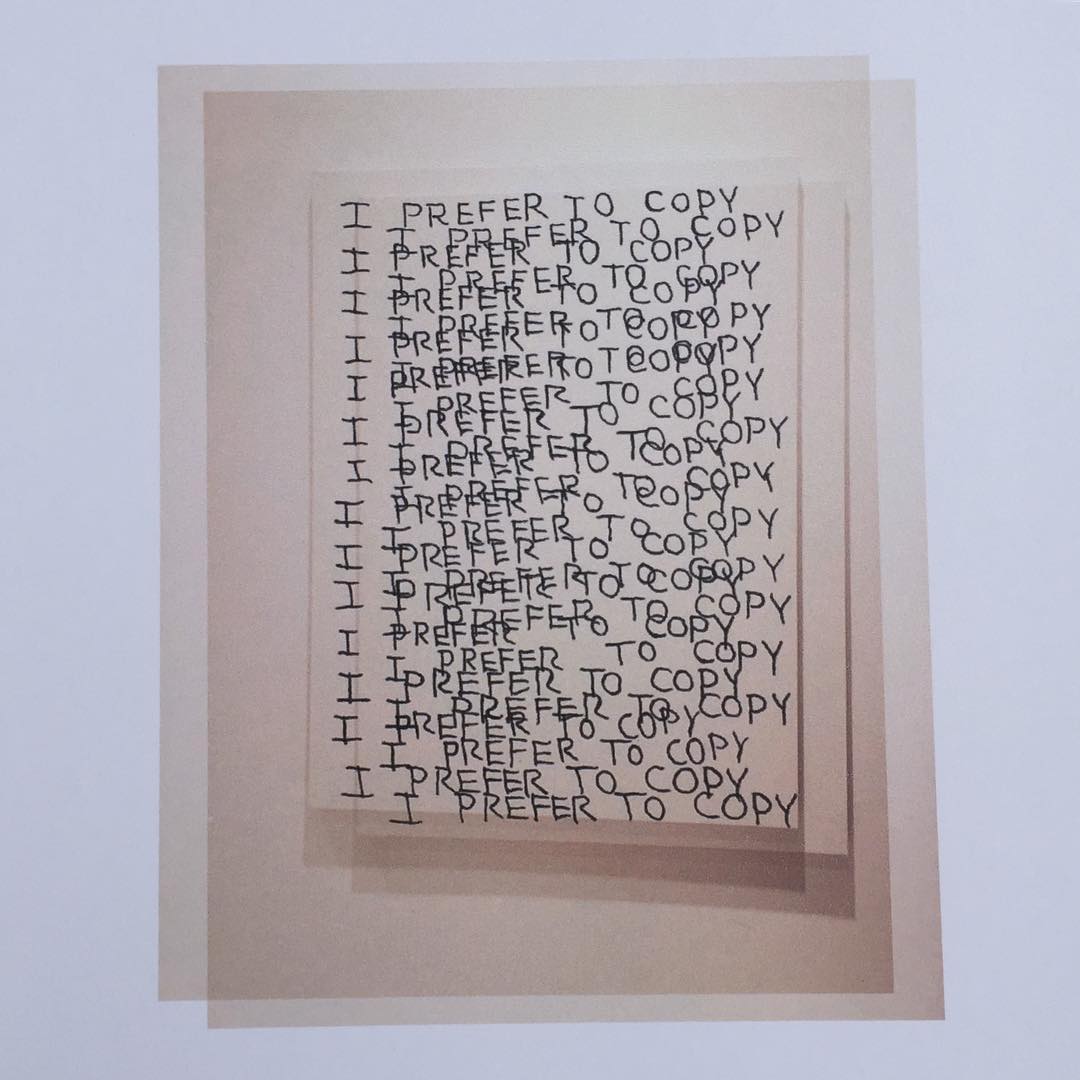 I PREFER TO COPY
I PREFER TO COPY
I PREFER TO COPY
I PREFER TO COPY
I PREFER TO COPY
I PREFER TO COPY
I PREFER TO COPY
I PREFER TO COPY
I PREFER TO COPY
I PREFER TO COPY
I PREFER TO COPY
I PREFER TO COPY
I PREFER TO COPY
I PREFER TO COPY
I PREFER TO COPY
I PREFER TO COPY
I PREFER TO COPY
I PREFER TO COPY
I PREFER TO COPY
I PREFER TO COPY
I PREFER TO COPY
I PREFER TO COPY
I PREFER TO COPY
I PREFER TO COPY
I PREFER TO COPY
I PREFER TO COPY
I PREFER TO COPY
I PREFER TO COPY